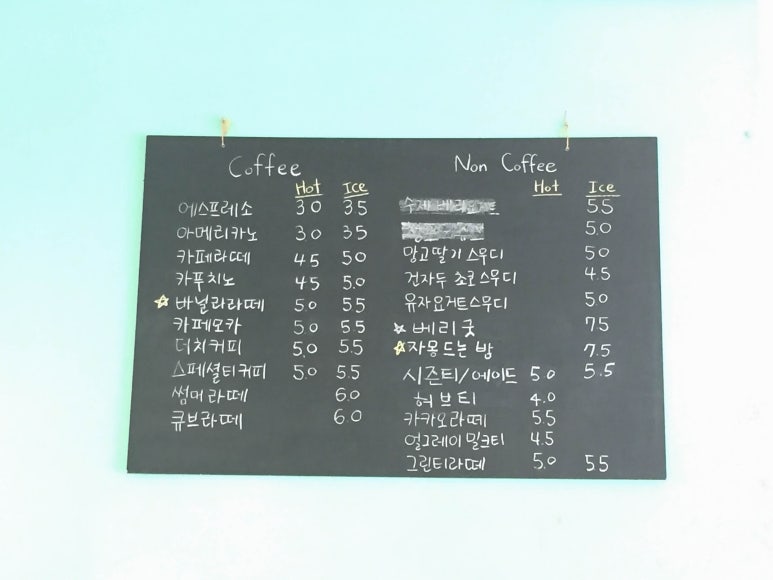 Coffee
Hot Ice
에스프레소 30 35
아메리카노 30 35
카페라떼 45 50
카푸치노 45 5.0
바닐라라떼 5.0 55
카페모카 5.0 5.5
더치커피 5.0 5.5
스페셜티커피 5.0 5.5
썸머라떼 6.0
큐브라떼 6.0
Non Coffee
Hot Ice
55
5.0
망고딸기스무디 50
건자두 쵸코스무디 4.5
유자요거트스무디 50
베리굿 75
자몽드는 밤 7.5
시즌티/에이드 5.0 5.5
허브티 4.0
카카오라떼 5.5
얼그레이밀크티 4.5
그린티라떼 5.0 55